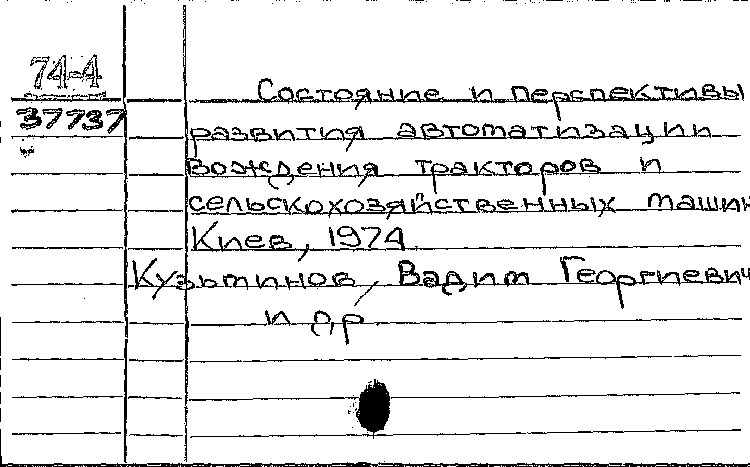 74-4
37737
Состояние и перспективы
развития автоматизации
вождения тракторов и
сельскохозяйственных машин
Киев, 1974
Кузьминов, Вадим Георгиевич
и др